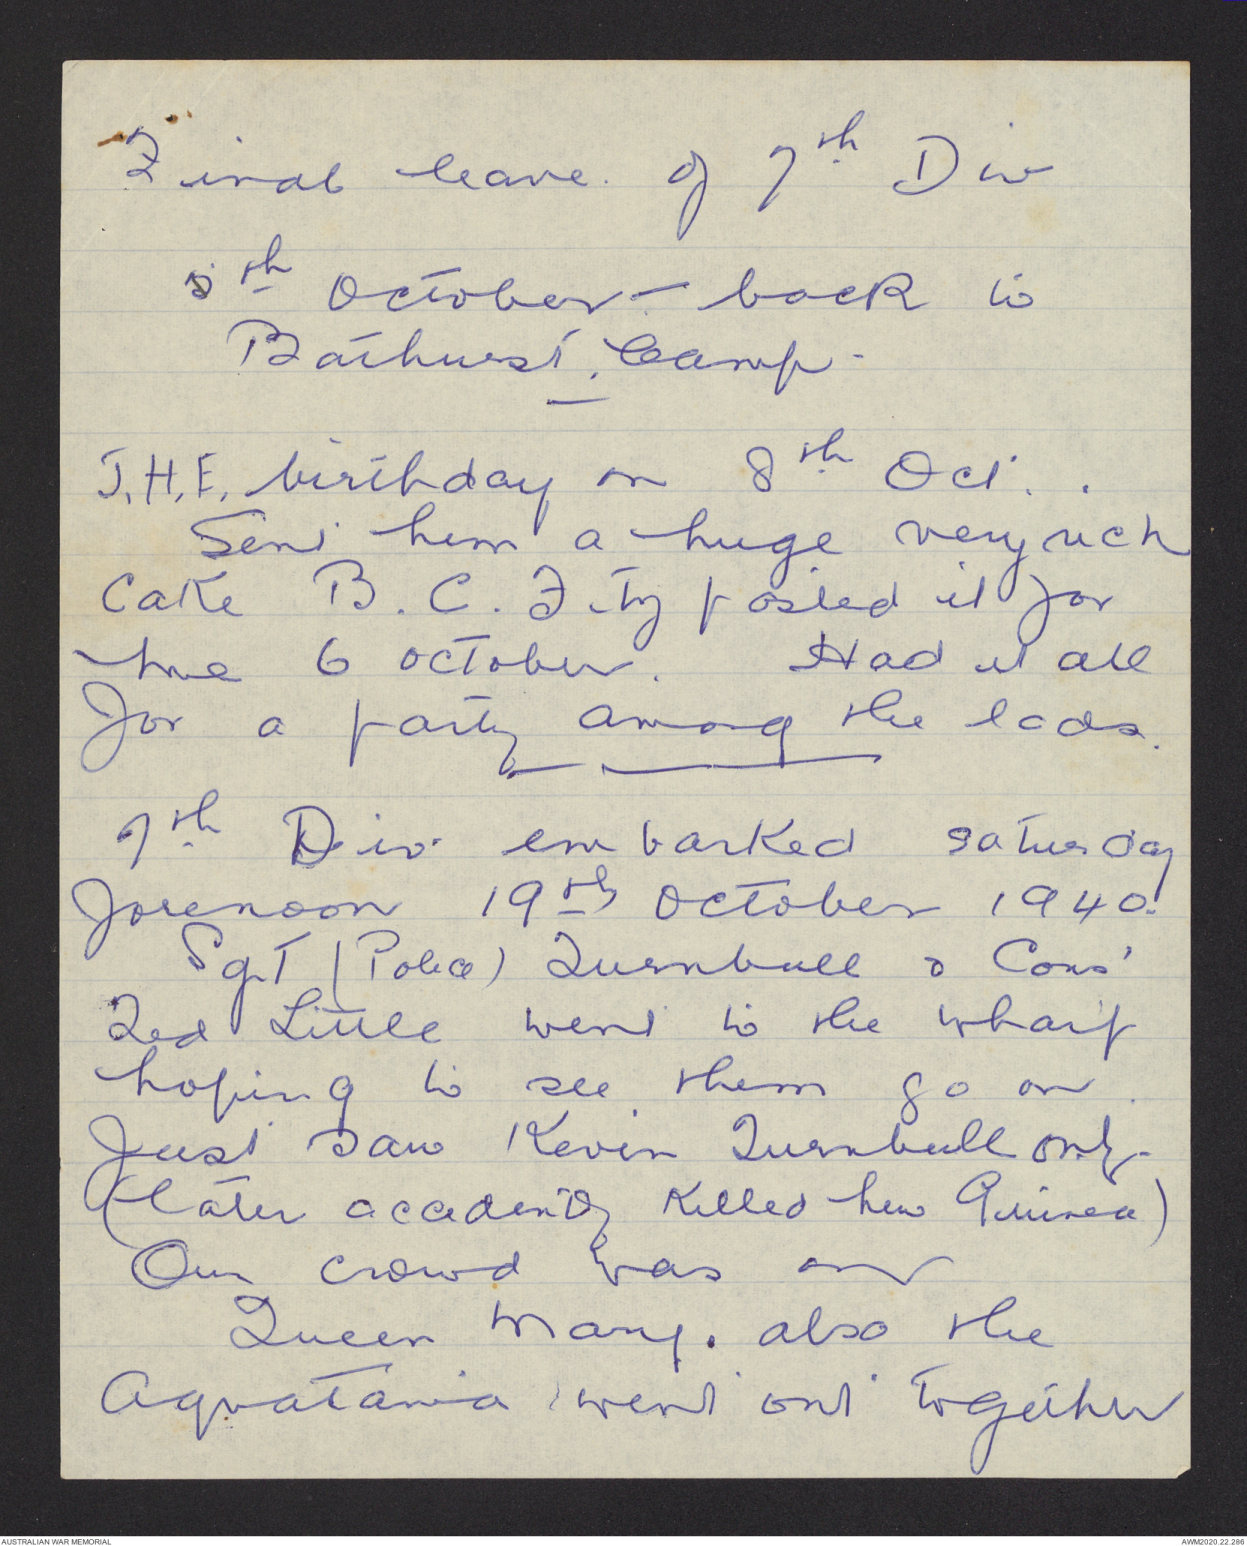 Final leave of 7th Div
5th October - back to
Bathurst Camp.
J.H.E. birthday on 8th Oct.
Sent him a huge very rich
cake B.C. Fitz posted it for
me 6 october. Had it all
for a party among the lads.
7th Div embarked Saturday
forenoon 19th October 1940.
Sgt (Police) Turnbull & Cons'
Ted Little went to the wharf
hoping to see them go on.
Just saw Kevin Turnbull only.
(later accidently killed New Guinea)
Our crowd was on
Queen Mary. also the
Aquatania went out together
AUSTRALIAN WAR MEMORIAL
AWM2020.22.286